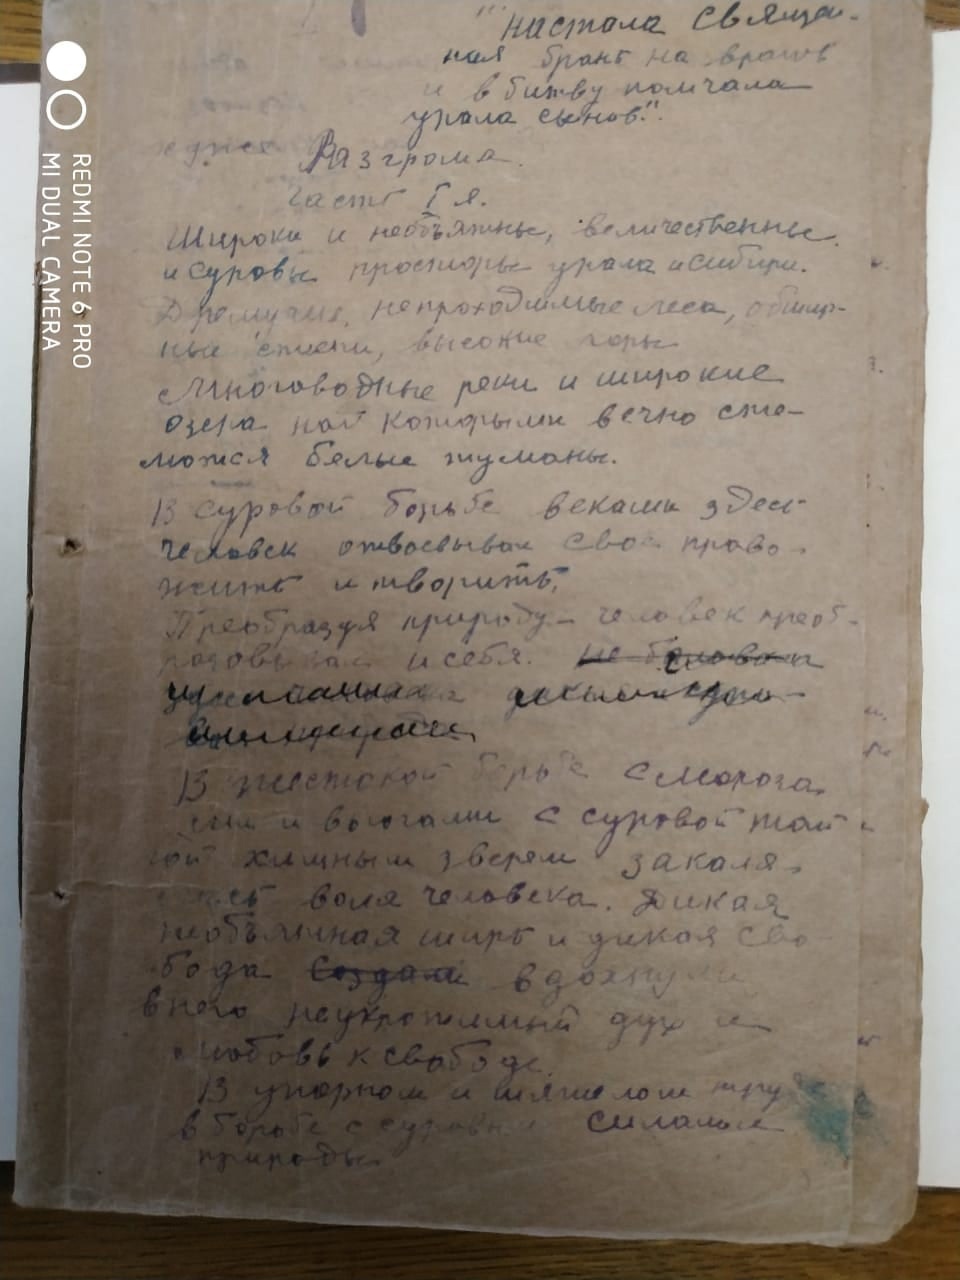 "настала священ-
ная брань на врагов
и в битву помчала
урала сынов".
Разгрома.
Часть I я.
Широки и необъятны, величественны
и суровы просторы урала и сибири.
Дремучие, непроходимые леса, обшир-
ные степи, высокие горы
Многоводные реки и широкие
озера над которыми вечно сте-
лются белые туманы.
В суровой борьбе веками здесь
человек отвоевывал свое право
жить и творить,
Преобразуя природу – человек преоб-
разовывал и себя. не
В жестокой борьбе с мороза
ми и вьюгами с суровой тай
гой хищным зверем закаля
лась воля человека. Дикая
необъятная ширь и дикая сво-
бода создали вдохнули
в него неукротимый дух и
любовь к свободе.
В упорном и тяжелом тру
в борьбе с суровыми силами
природы
REDMI NOTE 6 PRO
MI DUAL CAMERA